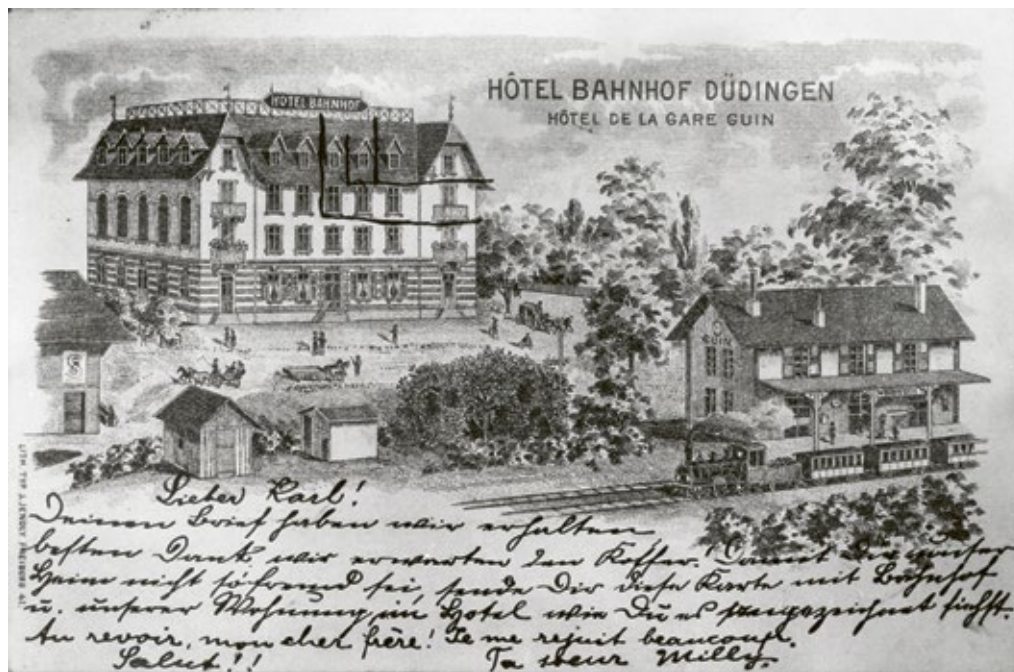 HÔTEL BAHNHOF DÜDINGEN
HÔTEL DE LA GARE GUIN
HÔTEL BAHNHOF
GUIN
LITH. TYP. J. JENDLY FREIBURG
Lieber Karl!
Deinen Brief haben wir erhalten
besten Dank, wir erwarten den Koffer. Damit Dir unser
Heim nicht so fremd sei, sende Dir diese Karte mit Bahnhof
u. unserer Wohnung im Hotel wie Du es angezeichnet siehst.
Au revoir, mon cher frère! Je me rejuit beaucoup.
Salut!! Ta sœur Milly.